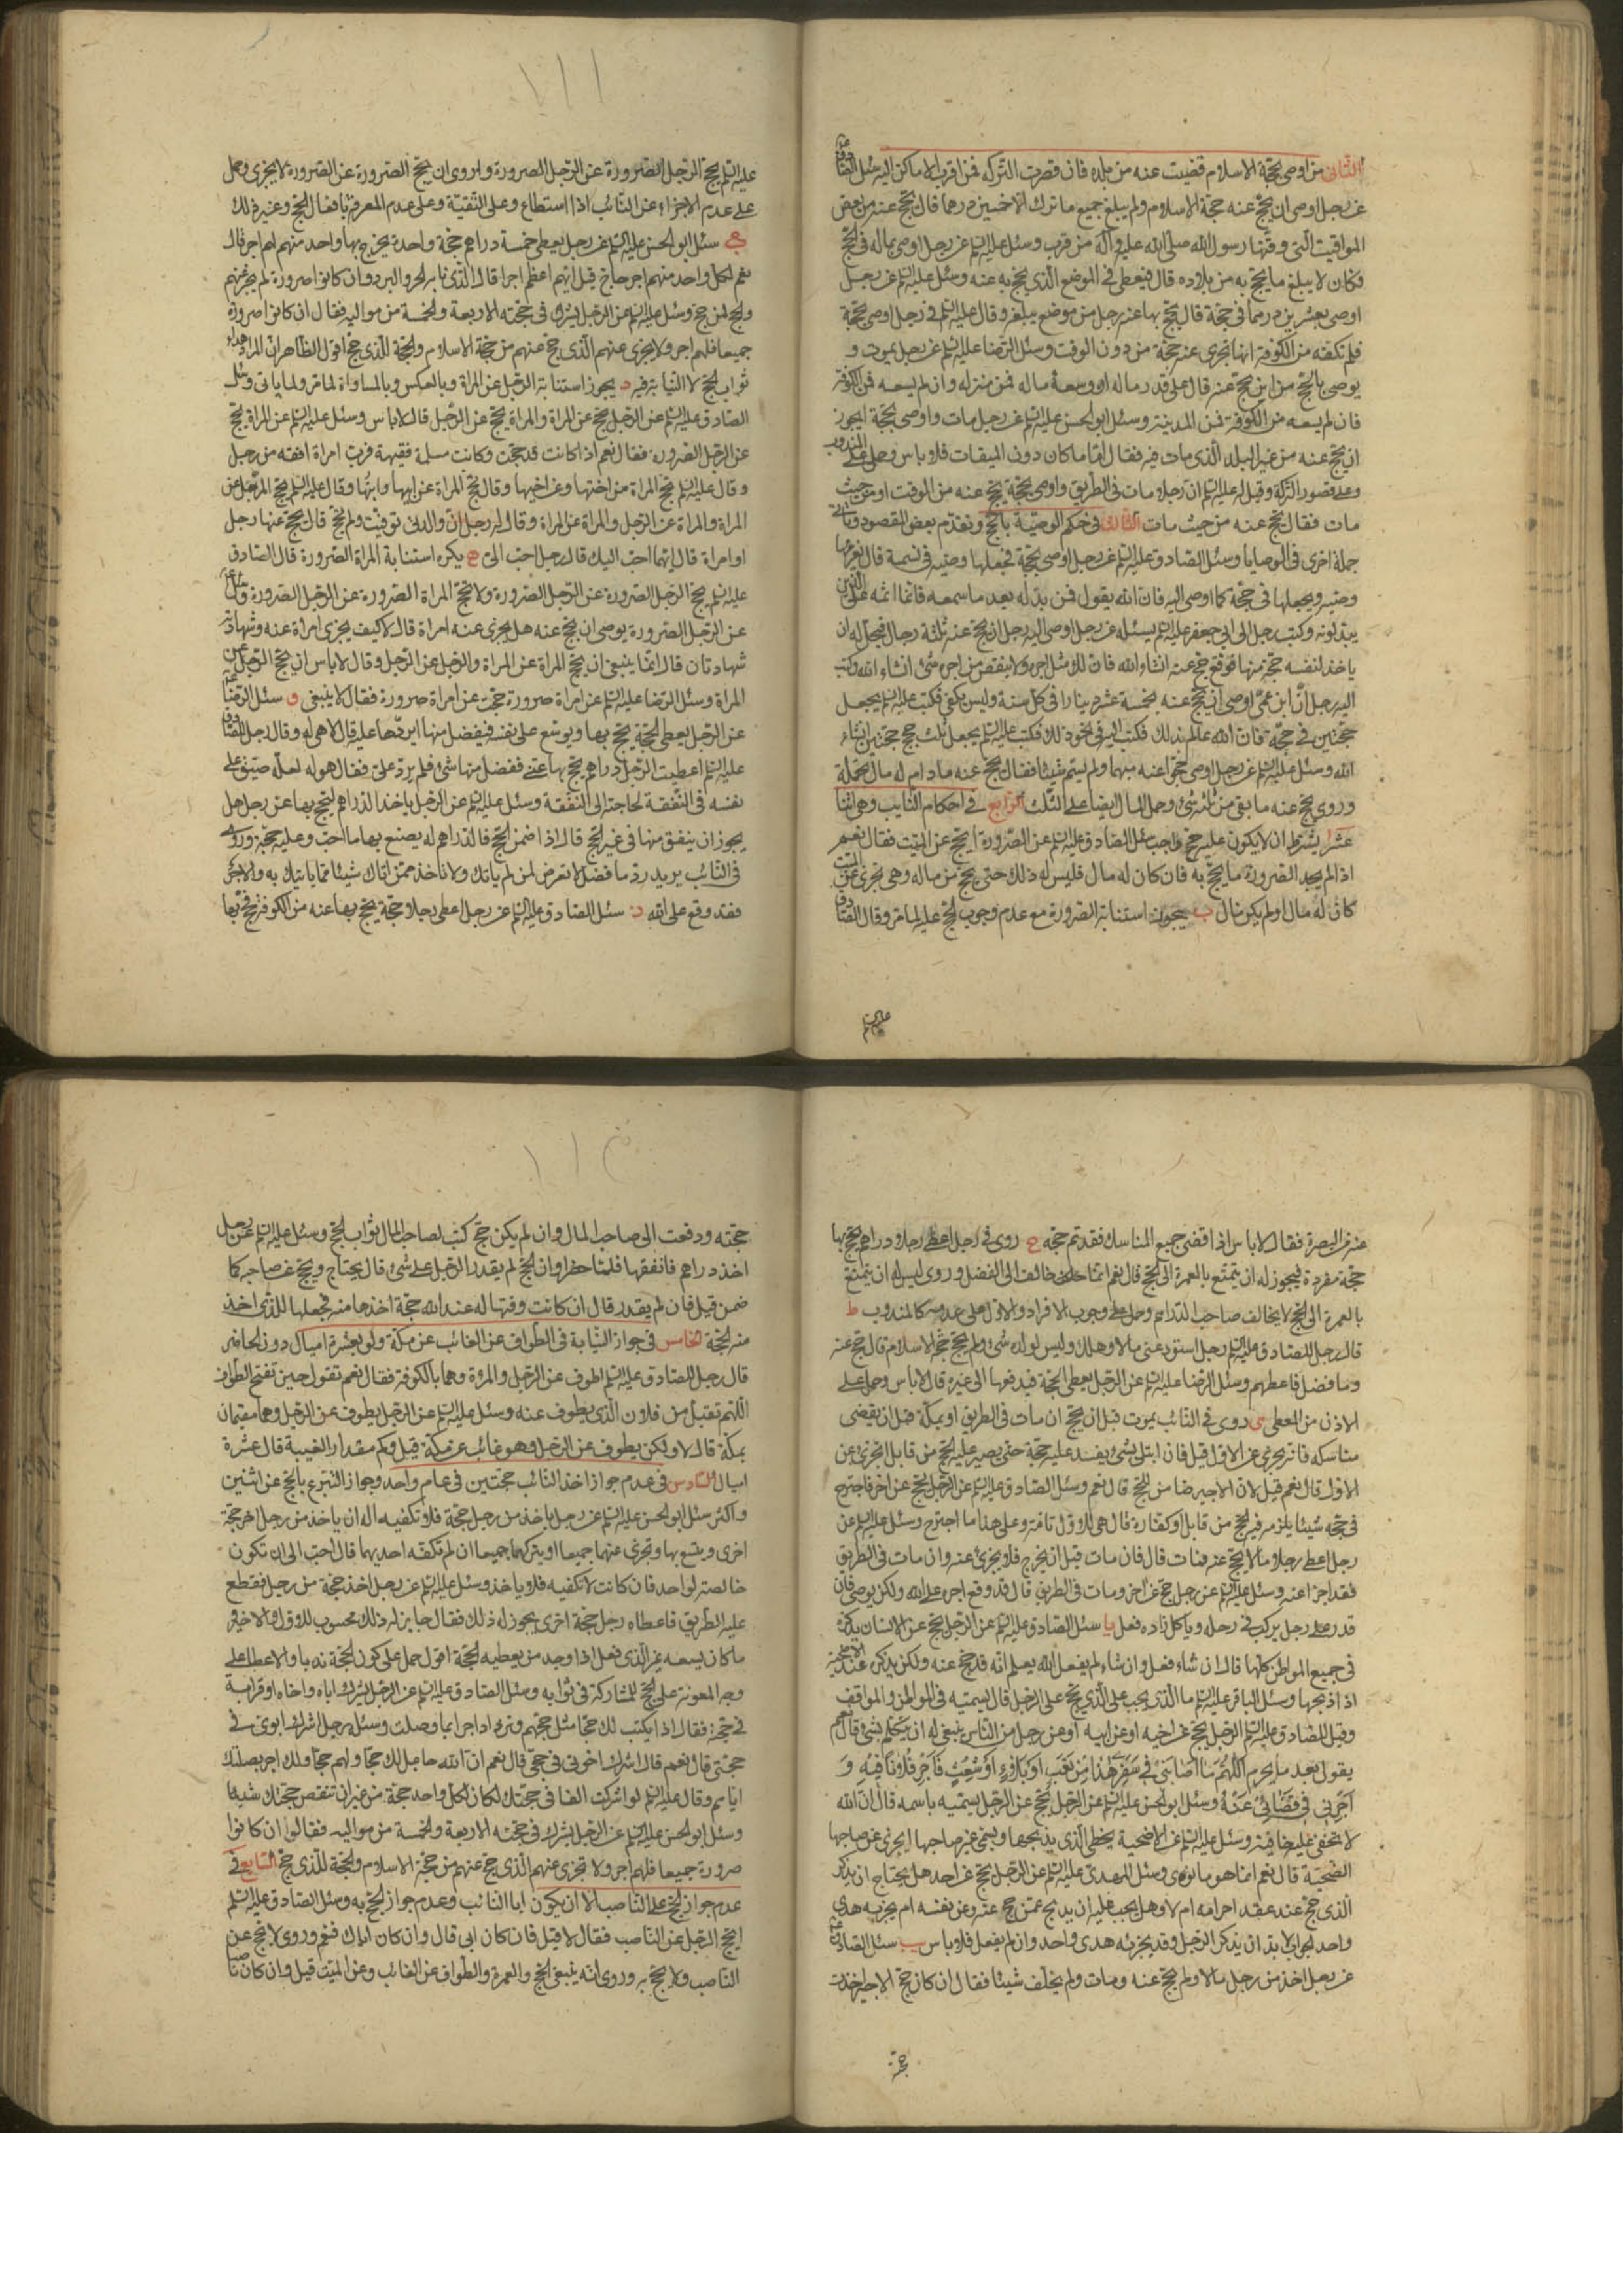 الثانى من اوصى بحجة الاسلام قضيت عنه من بلده فان قصرت التركة فمن اقرب الاماكن اليه سئل الصادق
عن رجل اوصى ان يحج عنه حجة الاسلام ولم يبلغ جميع ما ترك الا خمسين درهما قال يحج عنه من بعض
المواقيت التى وقتها رسول الله صلى الله عليه وآله من قرب وسئل عليه السلم عن رجل اوصى بماله فى الحج
فكان لا يبلغ ما يحج به من بلاده قال فيعطى فى الموضع الذى يحج به عنه وسئل عليه السلم عن رجل
اوصى بعشرين درهما فى حجة قال يحج بها عنه رجل من موضع يبلغه وقال عليه السلم فى رجل اوصى بحجة
فلم تكفه من الكوفة انها تجزى عنه حجة من دون الوقت وسئل الرضا عليه السلم عن رجل يموت و
يوصى بالحج من اين يحج عنه قال على قدر ماله ان وسعه ماله فمن منزله وان لم يسعه فمن الكوفة
فان لم يسعه من الكوفة فمن المدينة وسئل ابو الحسن عليه السلم عن رجل مات واوصى بحجة ايجوز
ان يحج عنه من غير البلد الذى مات فيه فقال اما ما كان دون الميقات فلا باس وحمل على المندوب
وعلى قصور التركة وقيل له عليه السلم ان رجلا مات فى الطريق واوصى بحجة يحج عنه من الوقت او من حيث
مات فقال يحج عنه من حيث مات الثالث فى حكم الوصية بالحج وتقدم بعض المقصود وياتى
جملة اخرى فى الوصايا وسئل الصادق عليه السلم عن رجل اوصى بحجة فجعلها وصيه فى نسمة قال يغرمها
وصيه ويجعلها فى حجة كما اوصى اليه فان الله يقول فمن بدله بعد ما سمعه فانما اثمه على الذين
يبدلونه وكتب رجل الى ابى جعفر عليه السلم يسئله عن رجل اوصى اليه رجل ان يحج عنه ثلثة رجال فيحل له ان
ياخذ لنفسه حجة منها فوقع حج عنه انشاء الله فان لك مثل اجره ولا ينقص من اجره شئ انشاء الله وكتب
اليه رجل ان ابن عمى اوصى ان يحج عنه بخمسة عشر دينارا فى كل سنة وليس يكفى فكتب عليه السلم يجعل
حجتين فى حجة فان الله عالم بذلك فكتب اليه فى نحو ذلك فكتب عليه السلم يجعل ثلث حجج حجتين انشاء
الله وسئل عليه السلم عن رجل اوصى حجوا عنه مبهما ولم يسم شيئا فقال يحج عنه ما دام له مال يحمله
وروى يحج عنه ما بقى من ثلثه شئ وحمل المال ايضا على الثلث الرابع فى احكام النايب وهى اثنا
عشر ا يشترط ان لا يكون عليه حج واجب سئل الصادق عليه السلم عن الصرورة ايحج عن الميت فقال نعم
اذا لم يجد الصرورة ما يحج به فان كان له مال فليس له ذلك حتى يحج من ماله وهى تجزى عن الميت
كان له مال او لم يكن مال ب يجوز استنابة الصرورة مع عدم وجوب الحج عليه لما مر وقال الصادق
عليه السلم
عليه السلم يحج الرجل الصرورة عن الرجل الصرورة وروى ان حج الصرورة عن الصرورة لا يجزى وحمل
على عدم الاجزاء عن النائب اذا استطاع وعلى التقية وعلى عدم المعرفة بافعال الحج وغير ذلك
ج سئل ابو الحسن عليه السلم عن رجل يعطى خمسة دراهم حجة واحدة يخرج بها واحد منهم لهم اجر قال
نعم لكل واحد منهم اجر حاج قيل ايهم اعظم اجرا قال الذى نابه الحر والبرد وان كانوا صرورة لم يجز عنهم
والحج لمن حج وسئل عليه السلم عن الرجل يشرك فى حجته الاربعة والخمسة من مواليه فقال ان كانوا صرورة
جميعا فلهم اجر ولا يجزى عنهم الذى حج عنهم من حجة الاسلام والحجة للذى حج اقول الظاهر ان المراد اهداء
ثواب الحج لا النيابة فيه د يجوز استنابة الرجل عن المراة وبالعكس وبالمساواة لما مر ولما ياتى وسئل
الصادق عليه السلم عن الرجل يحج عن المراة والمراة يحج عن الرجل قال لا باس وسئل عليه السلم عن المراة يحج
عن الرجل الصرورة فقال نعم اذا كانت قد حجت وكانت مسلمة فقيهة فرب امراة افقه من رجل
وقال عليه السلم يحج المراة من اختها وعن اخيها وقال يحج المراة عن ابيها وابنها وقال عليه السلم يحج الرجل عن
المراة والمراة عن الرجل والمراة عن المراة وقال له رجل ان والدتى توفيت ولم تحج قال يحج عنها رجل
او امراة قال ايهما احب اليك قال رجل احب الى ه يكره استنابة المراة الصرورة قال الصادق
عليه السلم يحج الرجل الصرورة عن الرجل الصرورة ولا يحج المراة الصرورة عن الرجل الصرورة
عن الرجل الصرورة يوصى ان يحج عنه هل يجزى عنه امراة قال لا كيف يجزى امراة عنه وشهادته
شهادتان قال انما ينبغى ان يحج المراة عن المراة والرجل عن الرجل وقال لا باس ان يحج الرجل عن
المراة وسئل الرضا عليه السلم عن امراة صرورة حجت عن امراة صرورة فقال لا ينبغى و سئل الرضا
عن الرجل يعطى الحجة يحج بها ويوسع على نفسه فيفضل منها ايردها عليه قال لا هى له وقال رجل للصادق
عليه السلم اعطيت الرجل دراهم يحج بها عنى ففضل منها شئ فلم يرد على فقال هو له لعله ضيق على
نفسه فى النفقة لحاجته الى النفقة وسئل عليه السلم عن الرجل ياخذ الدراهم ليحج بها عن رجل هل
يجوز ان ينفق منها فى غير الحج قال اذا ضمن الحج فالدراهم له يصنع بها ما احب وعليه حجة وروى
فى النائب يريد رد ما فضل لا تعرض لمن لم ياتك ولا تاخذ ممن اتاك شيئا مما ياتيك به والاجر
فقد وقع على الله ز سئل الصادق عليه السلم عن رجل اعطى رجلا حجة يحج بها عنه من الكوفة فحج بها
عنه من البصرة فقال لا باس اذا قضى جميع المناسك فقد تم حجه ح روى فى رجل اعطى رجلا دراهم يحج بها
حجة مفردة فيجوز له ان يتمتع بالعمرة الى الحج قال نعم انما خالف الى الفضل وروى ليس له ان يتمتع
بالعمرة الى الحج لا يخالف صاحب الدراهم وحمل على وجوب الافراد والاول على عدمه كالمندوب ط
قال رجل للصادق عليه السلم رجل استودعنى مالا وهلك وليس لولده شئ ولم يحج حجة الاسلام قال حج عنه
وما فضل فاعطهم وسئل الرضا عليه السلم عن الرجل يعطى الحجة فيدفعها الى غيره قال لا باس وحمل على
الاذن من المعطى ى روى فى النائب يموت قبل ان يحج ان مات فى الطريق او بمكة قبل ان يقضى
مناسكه فانه يجزى عن الاول قيل فان ابتلى بشئ يفسد عليه حجة حتى يصير عليه الحج من قابل ايجزى عن
الاول قال نعم قيل لان الاجير ضامن للحج قال نعم وسئل الصادق عليه السلم عن الرجل يحج عن اخر فاجترح
فى حجه شيئا يلزمه فيه الحج من قابل او كفارة قال هى للاول تامة وعلى هذا ما اجترح وسئل عليه السلم عن
رجل اعطى رجلا مالا يحج عنه فمات قال فان مات قبل ان يخرج فلا يجزئ عنه وان مات فى الطريق
فقد اجزا عنه وسئل عليه السلم عن رجل حج عن اخر ومات فى الطريق قال قد وقع اجره على الله ولكن يوصى فان
قدر على رجل يركب فى رحله وياكل زاده فعل يا سئل الصادق عليه السلم عن الرجل يحج عن الانسان يذكره
فى جميع المواطن كلها قال ان شاء فعل وان شاء لم يفعل الله يعلم انه قد حج عنه ولكن يذكره عند الاضحية
اذا ذبحها وسئل الباقر عليه السلم ما الذى يجب على الذى يحج على الرجل قال يسميه فى المواطن والمواقف
وقيل للصادق عليه السلم الرجل يحج عن اخيه او عن ابيه او عن رجل من الناس ينبغى له ان يتكلم بشئ قال نعم
يقول بعد ما يحرم اللهم ما اصابنى فى سفرى هذا من تعب او بلاء او شعث فاجر فلانا فيه و
اجرنى فى قضائى عنه وسئل ابو الحسن عليه السلم عن الرجل يحج عن الرجل يسميه باسمه قال ان الله
لا يخفى عليه خافية وسئل عليه السلم عن الاضحية يخطى الذى يذبحها ويسمى غير صاحبها ايجزى عن صاحبها
الضحية قال نعم انما هو ما نوى وسئل المهدى عليه السلم عن الرجل يحج عن احد هل يحتاج ان يذكر
الذى حج عنه عند عقد احرامه ام لا وهل يجب عليه ان يذبح عمن حج عنه وعن نفسه ام يجزيه هدى
واحد الجواب لا بد ان يذكر الرجل وقد يجزئه هدى واحد وان لم يفعل فلا باس يب سئل الصادق
عن رجل اخذ من رجل مالا ولم يحج عنه ومات ولم يخلف شيئا فقال ان كان حج الاجير اخذت
حجته
حجته ودفعت الى صاحب المال وان لم يكن حج كتب لصاحب المال ثواب الحج وسئل عليه السلم عن رجل
اخذ دراهم فانفقها فلما حضر اوان الحج لم يقدر الرجل على شئ قال يحتال ويحج عن صاحبه كما
ضمن قيل فان لم يقدر قال ان كانت له عند الله حجة اخذها منه فجعلها للذى اخذ
منه الحجة الخامس فى جواز النيابة فى الطواف عن الغائب عن مكة ولو بعشرة اميال دون الحاضر
قال رجل للصادق عليه السلم اطوف عن الرجل والمراة وهما بالكوفة فقال نعم تقول حين تفتتح الطواف
اللهم تقبل من فلان الذى يطوف عنه وسئل عليه السلم عن الرجل يطوف عن الرجل وهما مقيمان
بمكة قال لا ولكن يطوف عن الرجل وهو غائب عن مكة قيل وكم مقدار الغيبة قال عشرة
اميال السادس فى عدم جواز اخذ النائب حجتين فى عام واحد وجواز التبرع بالحج عن اثنين
واكثر سئل ابو الحسن عليه السلم عن رجل ياخذ من رجل حجة فلا تكفيه اله ان ياخذ من رجل اخر حجة
اخرى ويتسع بها وتجزى عنهما جميعا او يتركهما جميعا ان لم تكفه احديهما قال احب الى ان تكون
خالصة لواحد فان كانت لا تكفيه فلا ياخذ وسئل عليه السلم عن رجل اخذ حجة من رجل فقطع
عليه الطريق فاعطاه رجل حجة اخرى يجوز له ذلك فقال جايز له ذلك محسوب للاول والاخير
ما كان يسعه غير الذى فعل اذا وجد من يعطيه الحجة اقول حمل على كون الحجة ندبا والاعطا على
وجه المعونة على الحج للمشاركة فى ثوابه وسئل الصادق عليه السلم عن الرجل يشرك اباه واخاه او قرابة
فى حجه فقال اذا يكتب لك حجا مثل حجهم وتزداد اجرا بما وصلت وسئله رجل اشرك ابوى فى
حجتى قال نعم قال اشرك اخوتى فى حجتى قال نعم ان الله جاعل لك حجا ولهم حجا ولك اجر بصلتك
اياهم وقال عليه السلم لو اشركت الفا فى حجتك لكان لكل واحد حجة من غير ان تنقص حجتك شيئا
وسئل ابو الحسن عليه السلم عن الرجل يشرك فى حجته الاربعة والخمسة من مواليه فقال ان كانوا
صرورة جميعا فلهم اجر ولا تجزى عنهم الذى حج عنهم من حجة الاسلام والحجة للذى حج السابع فى
عدم جواز الحج على الناصب الا ان يكون ابا النائب وعدم جواز الحج به وسئل الصادق عليه السلم
ايحج الرجل عن الناصب فقال لا قيل فان كان ابى قال وان كان اباك فنعم وروى لا يحج عن
الناصب ولا يحج به وروى انه ينبغى الحج والعمرة والطواف عن الغائب وعن الميت قيل وان كان ناصبا